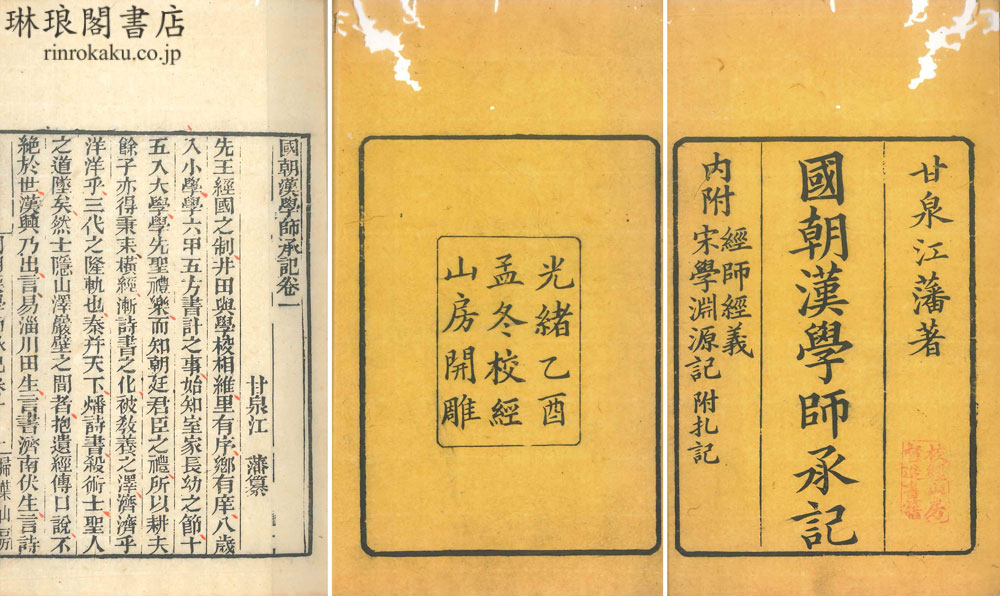 琳琅閣書店
rinrokaku.co.jp
甘泉江藩著
國朝漢學師承記
內附
經師經義
宋學淵源記附札記
光緒乙酉
孟冬校經
山房開雕
國朝漢學師承記卷一
甘泉江 藩纂
先王經國之制井田與學校相維里有序鄉有庠八歲
入小學學六甲五方書計之事始知室家長幼之節十
五入大學學先聖禮樂而知朝廷君臣之禮所以耕夫
餘子亦得秉耒橫經漸詩書之化被敎養之澤濟濟乎
洋洋乎三代之隆軌也秦幷天下燔詩書殺術士聖人
之道墜矣然士隱山澤巖壁之間者抱遺經傳口說不
絕於世漢興乃出言易淄川田生言書濟南伏生言詩